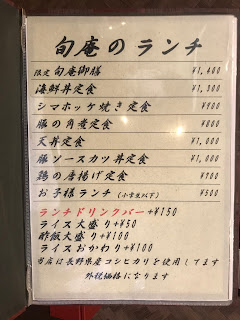 旬庵のランチ
限定 旬庵御膳 ¥1,400
海鮮丼定食 ¥1,300
シマホッケ焼き定食 ¥900
豚の角煮定食 ¥800
天丼定食 ¥1,000
豚ソースカツ丼定食 ¥1,000
鶏の唐揚げ定食 ¥900
お子様ランチ (小学生以下) ¥500
ランチドリンクバー+¥150
ライス大盛り+¥50
酢飯大盛り+¥100
ライスおかわり+¥100
当店は長野県産コシヒカリを使用してます
外税価格になります